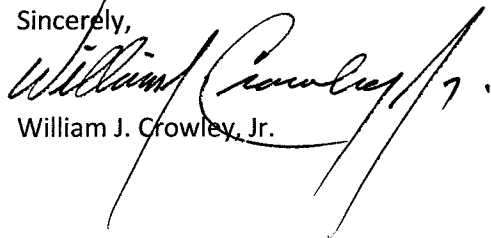 Sincerely,
William J. Crowley Jr.
William J. Crowley, Jr.